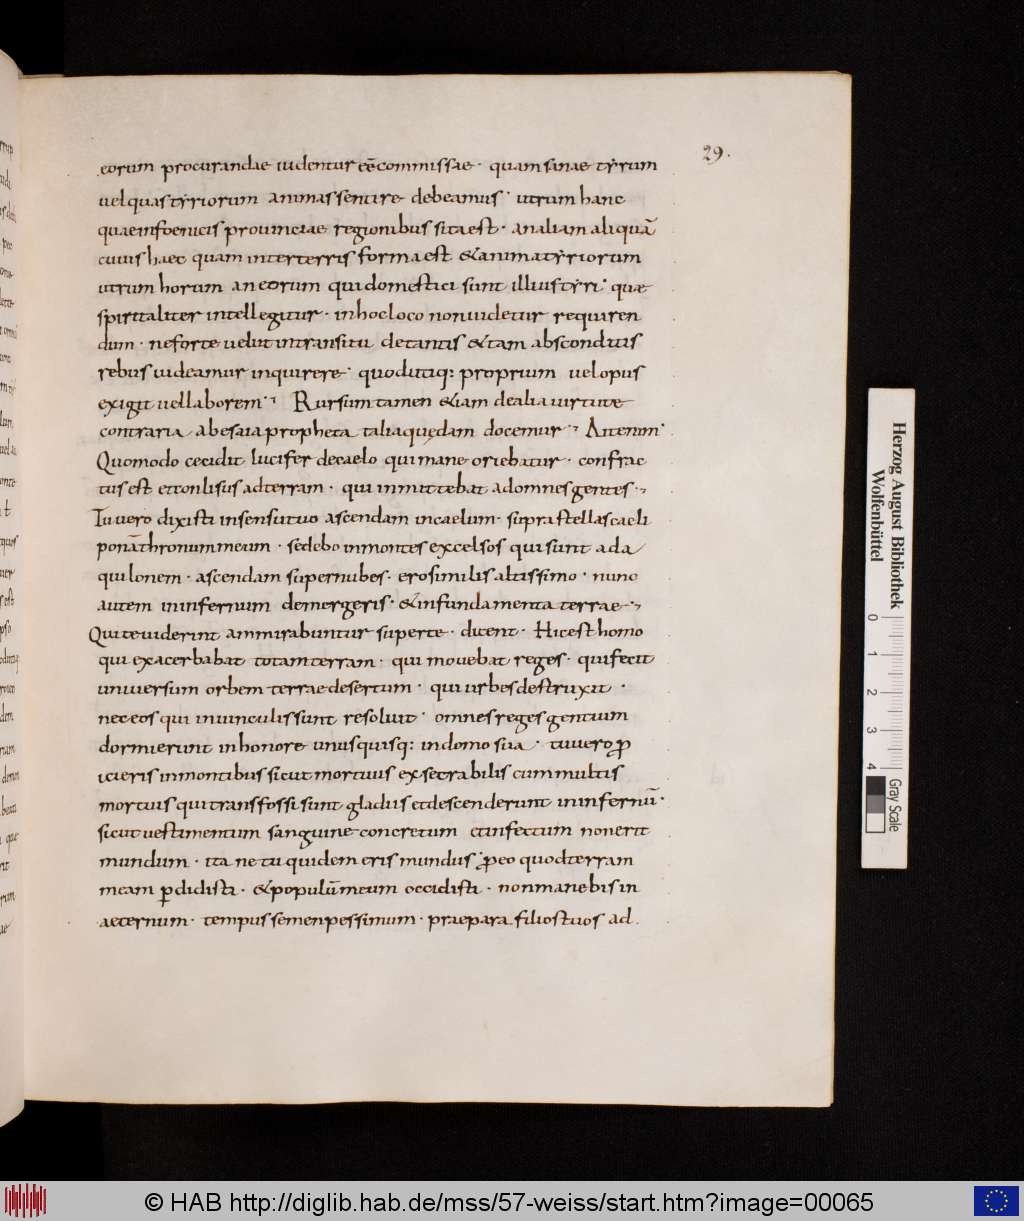 29.
eorum procurandae uidentur eē commissae· quam sanae tẏrum
uel quas tẏriorum animas sentire debeamus· utrum hanc
quae in foenicis prouinciae regionibus sita est· an aliam aliquā
cuius haec quam in terris forma est & anima tẏriorum
utrum horum an eorum qui domestici sunt illius tẏri· quae
spiritaliter intellegitur· in hoc loco non uidetur requiren
dum· ne forte uelut in transitu de tantis & tam absconditis
rebus uideamur inquirere· quod itiq: proprium uel opus
exigit uel laborem· Rursum tamen &iam de alia uirtute
contraria ab esaia propheta talia quędam docemur· Ait enim·
Quomodo cecidit lucifer de caelo qui mane oriebatur· confrac
tus est et conlisus ad terram· qui inmittebat ad omnes gentes·
Tu uero dixisti in sensu tuo ascendam in caelum· supra stellas caeli
ponā thronum meum· sedebo in montes excelsos qui sunt ad a
quilonem· ascendam super nubes· ero similis altissimo· nunc
autem in infernum demergeris· & in fundamenta terrae·
Qui te uiderint ammirabuntur super te· dicent· Hic est homo
qui exacerbabat totam terram· qui mouebat reges· qui fecit
uniuersum orbem terrae desertum· qui urbes destruxit·
nec eos qui in uinculis sunt resoluit· omnes reges gentium
dormierunt in honore unusquisq: in domo sua· tu uero ꝓ
icieris in montibus sicut mortuus exsecrabilis cum multis
mortuis qui transfossi sunt gladiis et descenderunt in infernū·
sicut uestimentum sanguine concretum et infectum non erit
mundum· ita ne tu quidem eris mundus· ꝓ eo quod terram
meam ꝑdidisti· & populū meum occidisti· non manebis in
aeternum· tempus semen pessimum· praepara filios tuos ad
Herzog August Bibliothek
Wolfenbüttel
0 1 2 3 4
Gray Scale
© HAB http://diglib.hab.de/mss/57-weiss/start.htm?image=00065